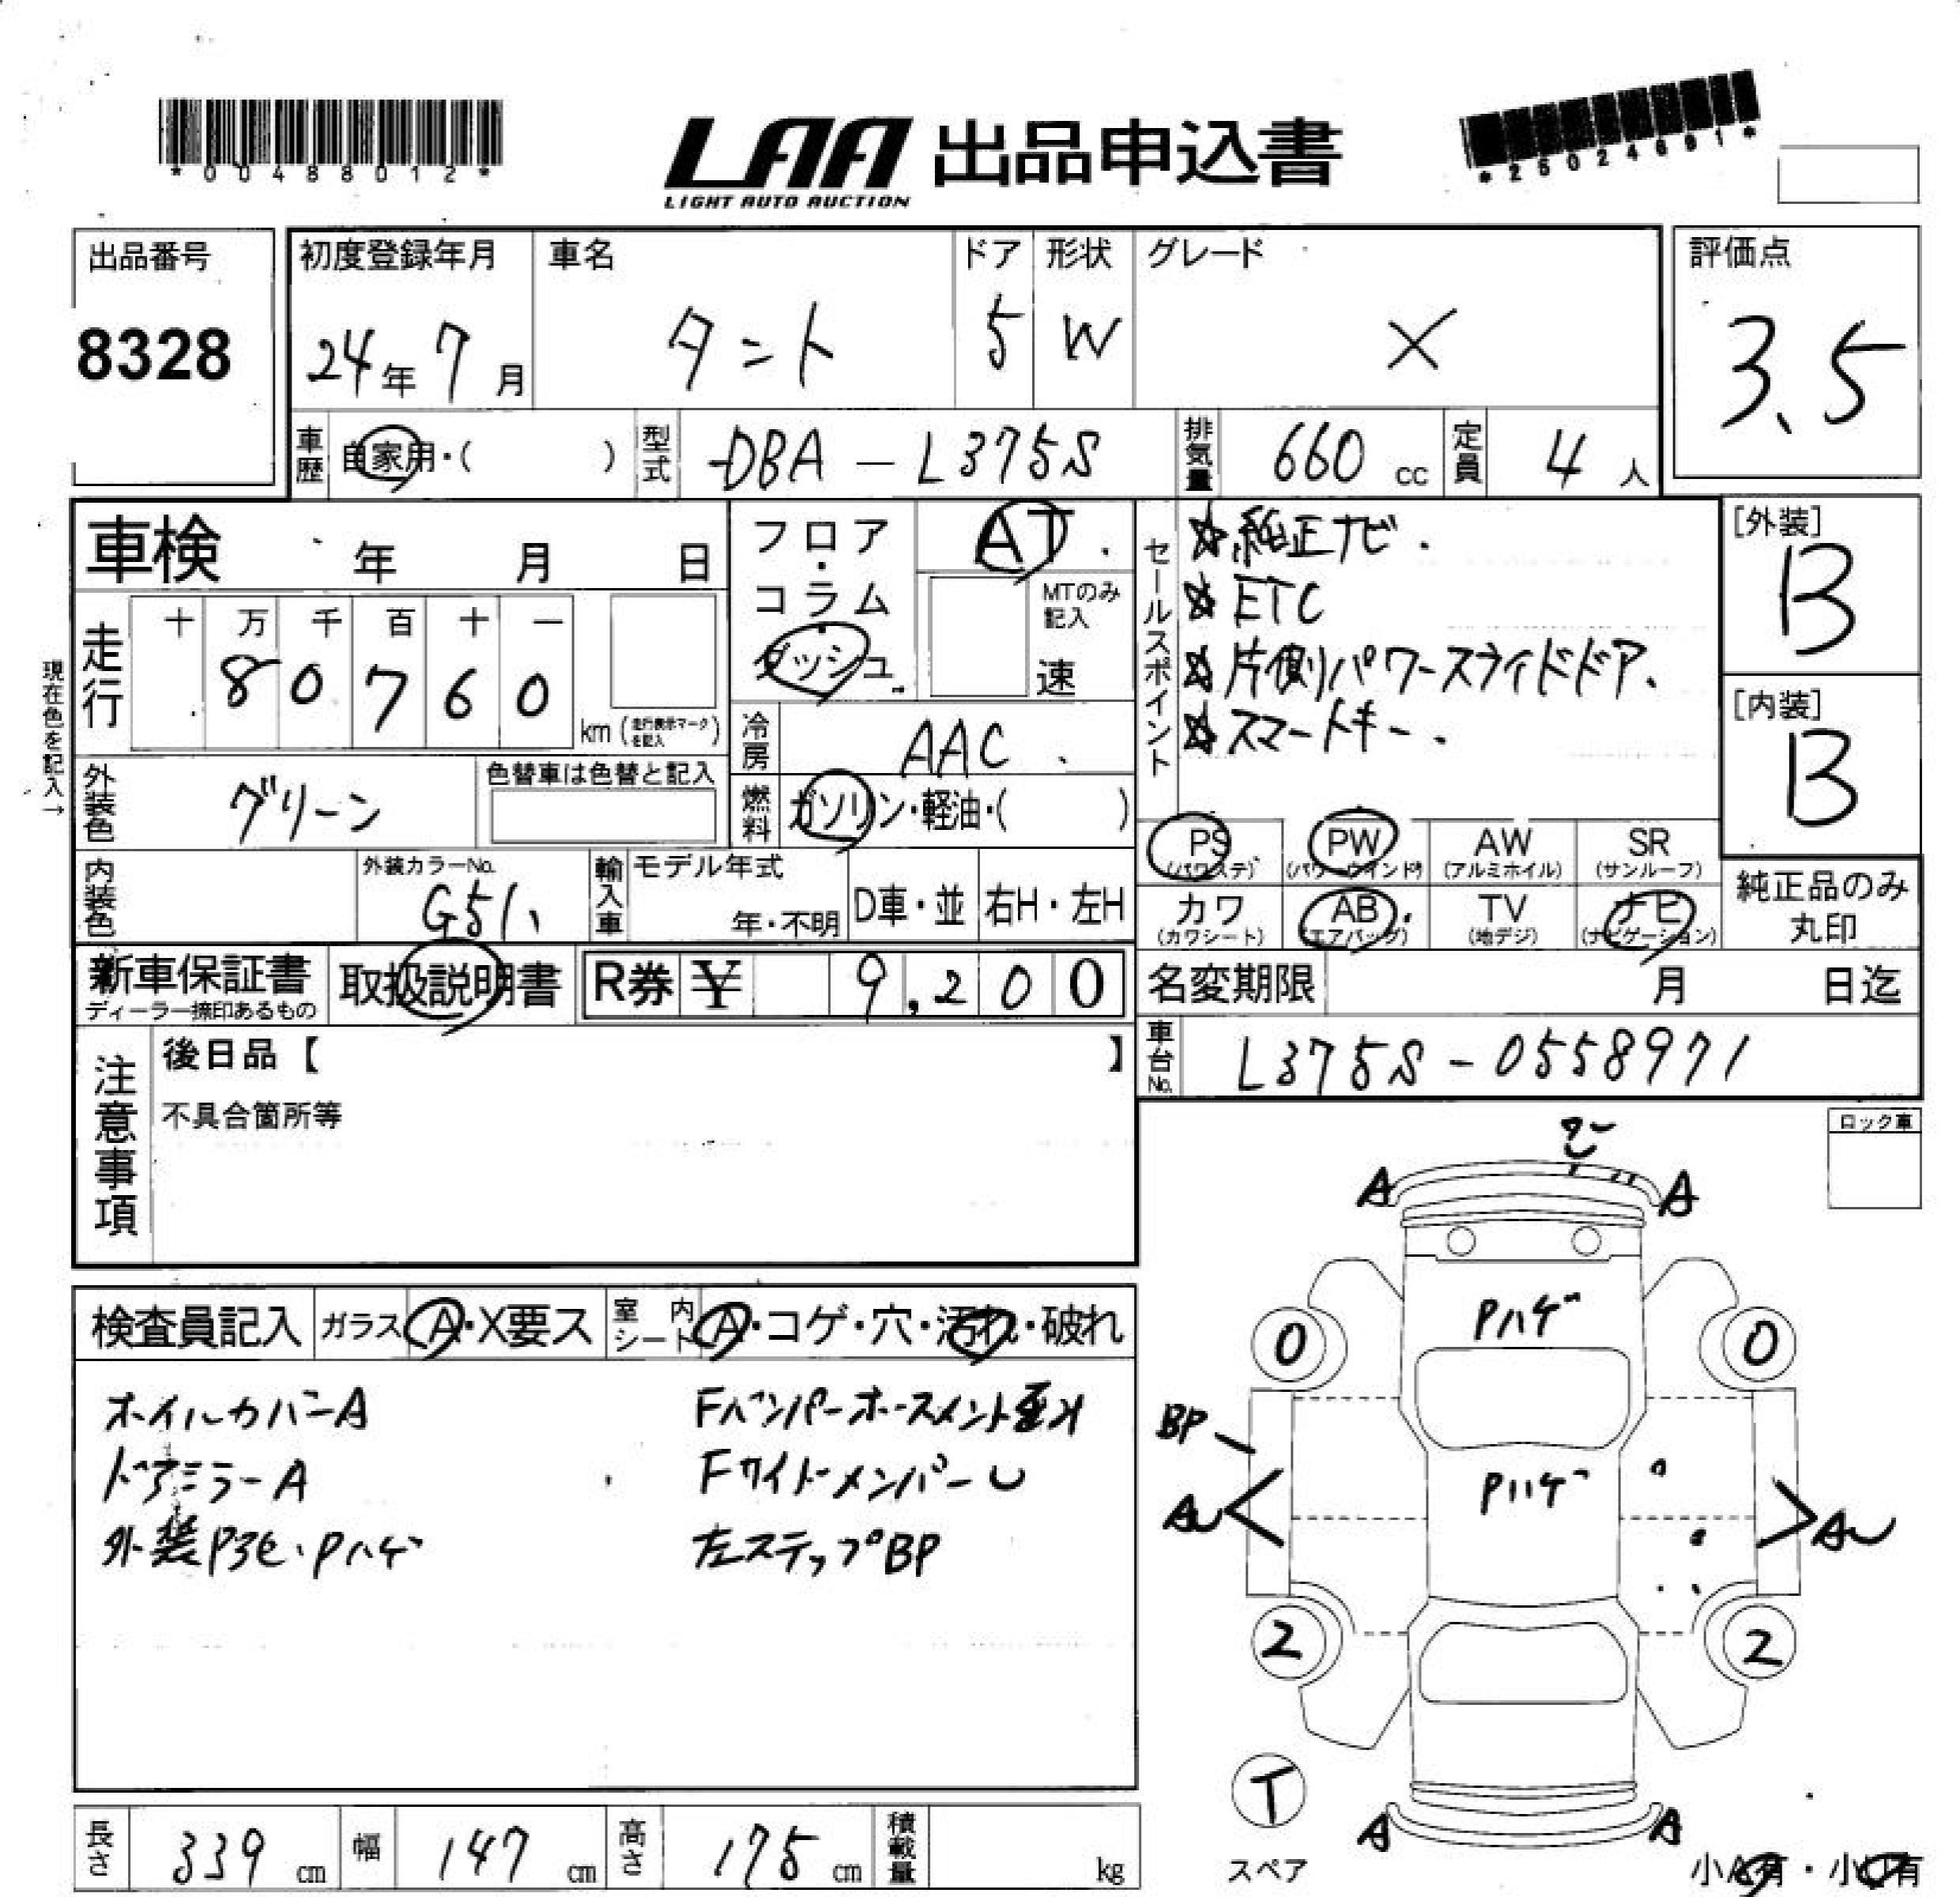 *00488012*
LAA 出品申込書
LIGHT AUTO AUCTION
*25024691*
出品番号
8328
初度登録年月
24年7月
車名
タント
ドア
5
形状
W
グレード
X
評価点
3.5
車歴
自家用・( )
型式
DBA-L375S
排気量
660cc
定員
4人
車検 年 月 日
フロア・コラム・ダッシュ
AT
MTのみ記入
速
セールスポイント
☆純正ナビ.
☆ETC
☆片側パワースライドドア.
☆スマートキー.
[外装]
B
[内装]
B
現在色を記入→
走行
十 万 千 百 十 一
8 0 7 6 0
km(走行表示マークを記入)
冷房
AAC
外装色
グリーン
色替車は色替と記入
燃料
ガソリン・軽油・( )
PS (パワステ)
PW (パワーウインドウ)
AW (アルミホイル)
SR (サンルーフ)
カワ (カワシート)
AB (エアバッグ)
TV (地デジ)
ナビ (ナビゲーション)
純正品のみ
丸印
内装色
外装カラーNo.
G51
輸入車
モデル年式
年・不明
D車・並
右H・左H
新車保証書
ディーラー捺印あるもの
取扱説明書
R券 ¥ 9,200
名変期限 月 日迄
車台No.
L375S-0558971
注意事項
後日品【 】
不具合箇所等
ロック車
検査員記入
ガラス A・X要ス
室内シート A・コゲ・穴・汚れ・破れ
ホイルカバーA
ドアミラーA
外装P褪色・Pハゲ
Fバンパーホースメント歪み
FサイドメンバーU
左ステップBP
A
A
Pハゲ
0
0
BP
Pハゲ
AU
AU
2
2
T
スペア
A
A
小A有・小U有
長さ 339cm
幅 147cm
高さ 175cm
積載量 kg